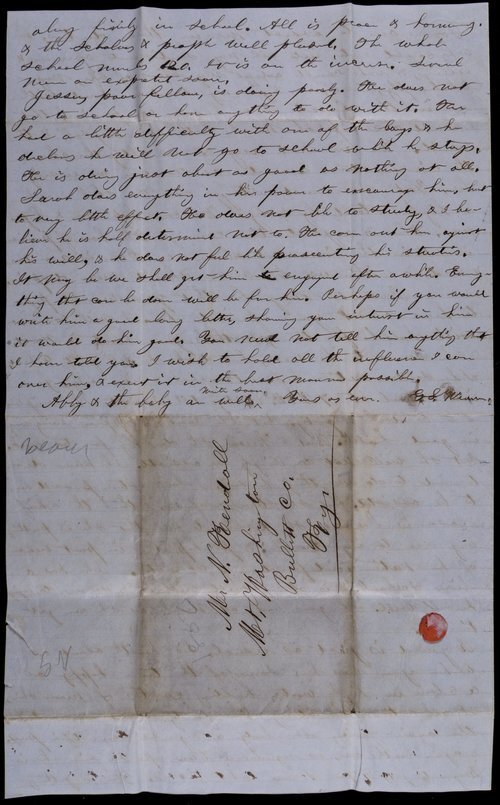 along finely in school. All is peace & harmony
& the scholars & people well pleased. The whole
school numbers 120. It is on the increase. Several
more are expected soon.
Jessey, poor fellow, is doing poorly. He does not
go to school or have anything to do with it. He
had a little difficulty with one of the boys & he
declares he will not go to school while he stays.
He is doing just about as good as nothing at all.
Sarah does everything in her power to encourage him, but
to very little effect. He does not like to study, & I be-
lieve he is half determined not to. He came out here against
his will, & he does not feel like prosecuting his studies.
It may be we shall get him to engaged after a while. Every-
thing that can be done will be for him. Perhaps if you would
write him a good long letter, showing your interest in him
it would do him good. You need not tell him anything that
I have told you. I wish to hold all the influence I can
over him, & exert it in the best manner possible.
Abby & the baby are well. Write soon. Yours as ever.
Mr. N. Kendall
Mt Washington
Bullitt Co.
Ky.